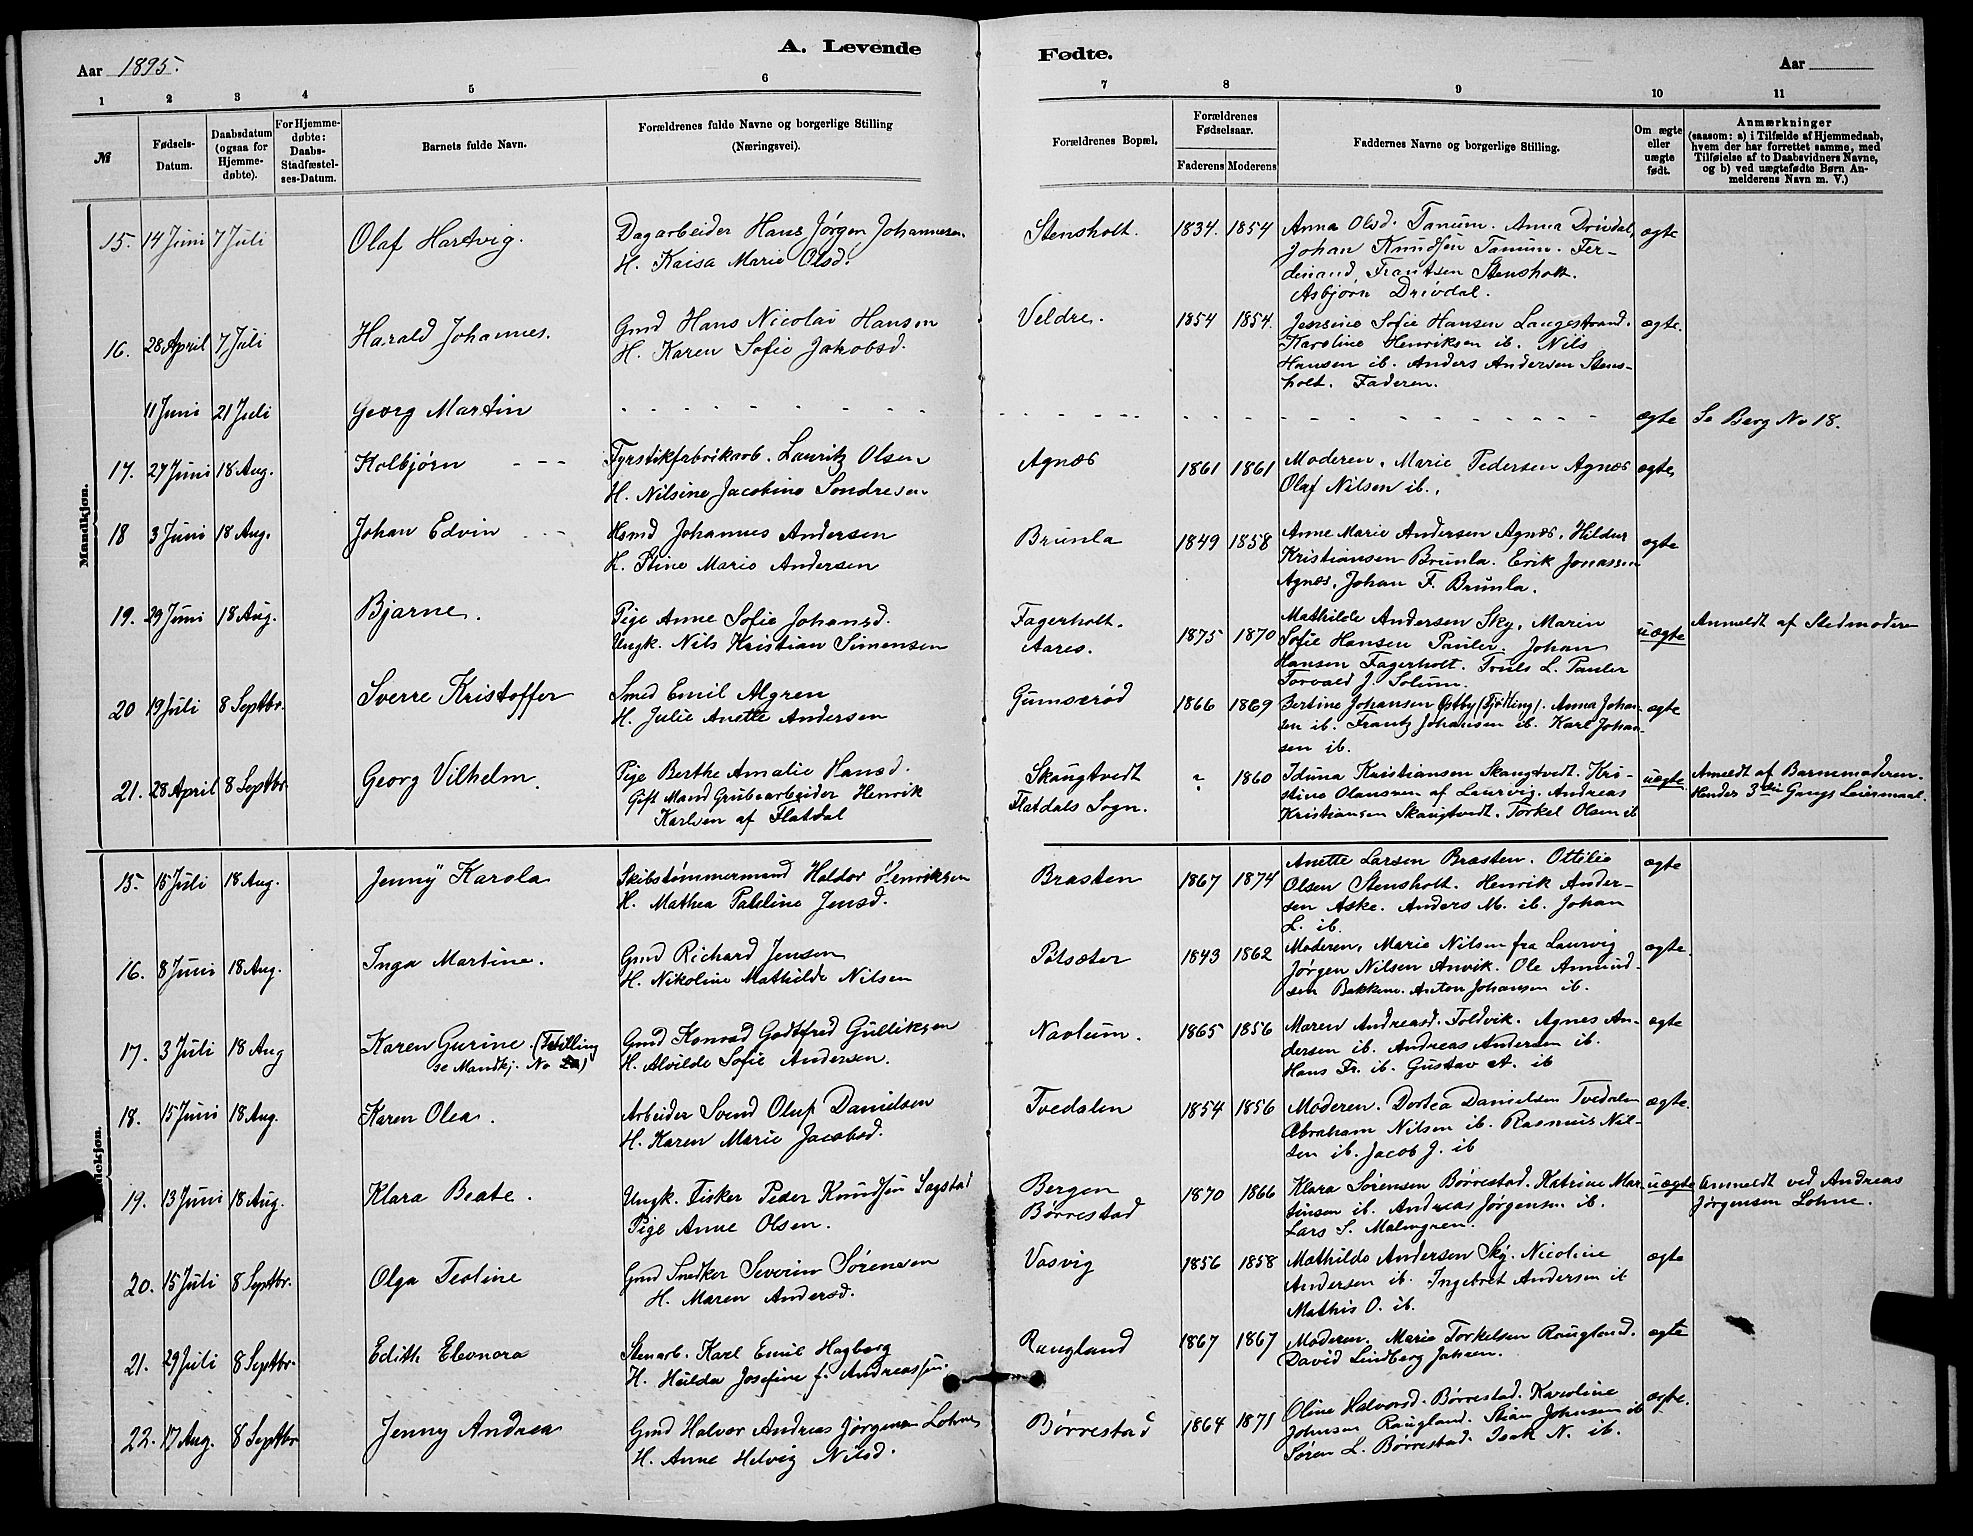 A. Levende
Fødte.
Aar 1895.
Aar
1 2 3 4 5 6 7 8 9 10 11
№
Fødsels-Datum.
Daabsdatum (ogsaa for Hjemme-døbte).
For Hjemme-døbte: Daabs-Stadfæstel-ses-Datum.
Barnets fulde Navn.
Forældrenes fulde Navne og borgerlige Stilling (Næringsvei).
Forældrenes Bopæl.
Forældrenes Fødselsaar.
Faderens Moderens
Faddernes Navne og borgerlige Stilling.
Om ægte eller uægte født.
Anmærkninger
(saasom: a) i Tilfælde af Hjemmedaab,
hvem der har forrettet samme, med
Tilføielse af to Daabsvidners Navne,
og b) ved uægtefødte Børn An-
melderens Navn m. V.)
Mandkjøn.
15. 14 Juni 7 Juli Olaf Hartvig. Dagarbeider Hans Jørgen Johannesen. Stensholt. 1834. 1854 Anna Olsd. Tanum. Anna Drivdal, ægte
H. Kaisa Marie Olsd. Johan Knudsen Tanum. Fer-
dinand Frantsen Stensholt.
Asbjørn Drivdal.
16. 28 April 7 Juli Harald Johannes. Gmd Hans Nicolai Hansen Veldre. 1854 1854. Jensine Sofie Hansen Langestrand. ægte.
H. Karen Sofie Jakobsd. Karoline Henriksen ib. Nils
Hansen ib. Anders Andersen Stens-
holt. Faderen.
11 Juni 21 Juli Georg Martin - - - - - - ægte Se Berg No 18.
17. 27 Juni 18 Aug. Kolbjørn - - - Fyrstikfabrikarb. Lauritz Olsen Agnæs 1861 1861 Moderen. Marie Pedersen Agnæs ægte
H. Nilsine Jacobine Sondresen Olaf Nilsen ib.
18 3 Juni 18 Aug. Johan Edvin - - Hsmd Johannes Andersen Brunla 1849 1858 Anne Marie Andersen Agnæs. Hildur ægte
H. Stine Marie Andersen Kristiansen Brunla. Erik Jonassen
Agnæs. Johan F. Brunla.
19. 29 Juni 18 Aug. Bjarne. Pige Anne Sofie Johansd. Fagerholt. 1875 1870 Mathilde Andersen Sky. Marin uægte Anmeldt af Stedmoderen
Ungk. Nils Kristian Simensen Aares. Sofie Hansen Pauler. Johan
Hansen Fagerholt. Truls L. Pauler
Torvald J. Solum.
20 19 Juli 8 Septbr. Sverre Kristoffer Smed Emil Algren Gumserød 1866 1869 Bertine Johansen Østby (Fjølling). Anna Johan- ægte
H. Julie Anette Andersen sen ib. Frantz Johansen ib. Karl Johan-
sen ib.
21. 28 April 8 Septbr. Georg Vilhelm. Pige Berthe Amalie Hansd. Skaugtvedt ? 1860 Iduna Kristiansen Skaugtvedt. Kri- uægte Anmeldt af Barnemoderen.
Gift Mand Grubearbeider Henrik Flatdals Sogn. stine Olaussen af Laurvig. Andreas Hendes 3die Gangs Leiermaal.
Karlsen af Flatdal Kristiansen Skaugtvedt. Torkel Olsen ib
15. 15 Juli 18 Aug. Jenny Karola Skibstømmermand Haldor Henriksen Brasten 1867 1874 Anette Larsen Brasten. Ottilie ægte
H. Mathea Pauline Jensd. Olsen Stensholt. Henrik Ander-
sen Aske. Anders M. ib. Johan
L. ib.
16. 8 Juni 18 Aug. Inga Martine. Gmd Richard Jensen Pötsæter 1843 1862 Moderen, Marie Nilsen fra Laurvig ægte.
H. Nikoline Mathilde Nilsen Jørgen Nilsen Anvik. Ole Amund-
sen Bakkene. Anton Johansen ib.
17. 3 Juli 18 Aug Karen Gurine. (Tvilling Gmd Konrad Godtfred Gulliksen Navlum. 1865 1856 Maren Andreasd. Foldvik. Agnes An- ægte
se Mandkj. No) H. Alvilde Sofie Andersen. dersen ib. Andreas Andersen ib.
Hans Fr. ib. Gustav A. ib
18. 15 Juni 18 Aug. Karen Olea. Arbeider Svend Oluf Danielsen Tvedalen 1854 1856 Moderen. Dortea Danielsen Tvedalen ægte.
H. Karen Marie Jacobsd. Abraham Nilsen ib. Rasmus Nil-
sen ib. Jacob J. ib
19. 13 Juni 18 Aug. Klara Beate. Ungk. Fisker Peder Knudsen Sagstad Bergen 1870 1866 Klara Sørensen Børrestad. Katrine Mar- uægte Anmeldt ved Andreas
Pige Anne Olsen. Børrestad tinsen ib. Andreas Jørgensen ib. Jørgensen Lohne.
Lars S. Malmgren.
20. 15 Juli 8 Septbr. Olga Teoline Gmd Snedker Severin Sørensen Vasvig 1856 1858 Mathilde Andersen Sky. Nicoline ægte
H. Maren Andersd. Andersen ib. Ingebret Andersen ib
Mathis O. ib.
21. 29 Juli 8 Septbr. Edith Eleonora Stenarb. Karl Emil Hagberg Raugland 1867 1867 Moderen. Marie Torkelsen Raugland. ægte
H. Hulda Josefine f. Andreassen. David Lindberg Jahren.
22. 17 Aug. 8 Septbr Jenny Andrea Gmd Halvor Andreas Jørgensen Lohne Børrestad 1864 1871 Oline Halvorsd. Børrestad. Karoline ægte.
H. Anne Helvig Nilsd. Johnsen Raugland. Stian Johnsen ib
Søren L. Børrestad. Isak N. ib.